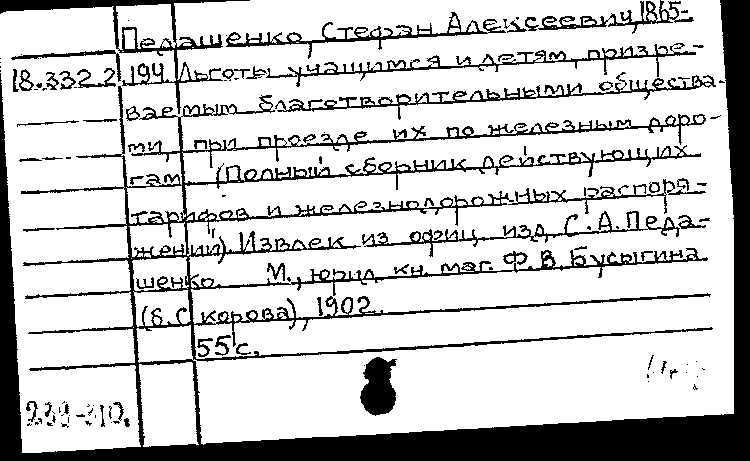 Педашенко, Стефан Алексеевич, 1865-
18.332.2.194 Льготы учащимся и детям, призре-
ваемым благотворительными общества-
ми, при проезде их по железным доро-
гам. (Полный сборник действующих
тарифов и железнодорожных распоря-
жений). Извлек из офиц. изд. С.А. Педа-
шенко. М., юрид. кн. маг. Ф.В. Бусыгина
(б. Скорова), 1902.
55 с.
239-310.